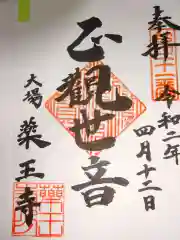 奉拝
令和二年
四月十二日
正観世音
大場
薬王寺